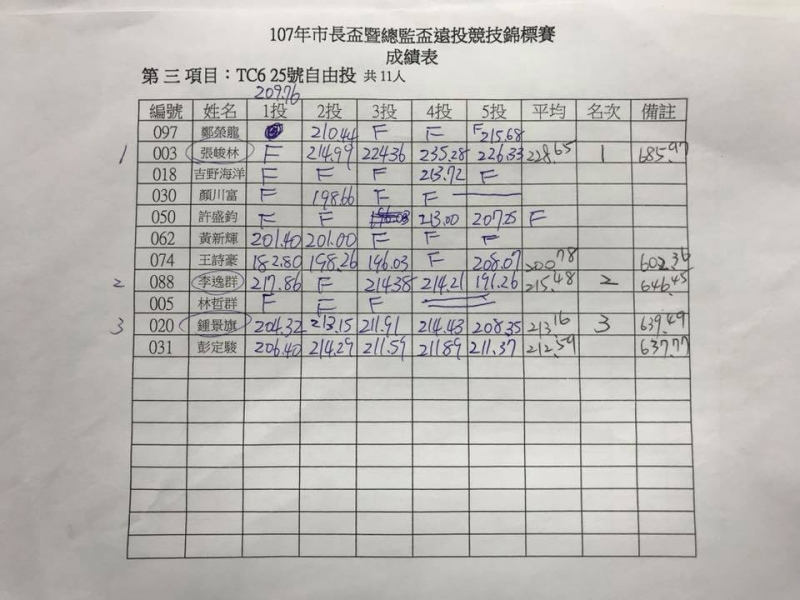 107年市長盃暨總監盃遠投競技錦標賽
成績表
第三項目：TC6 25號自由投 共11人
209.76
編號 姓名 1投 2投 3投 4投 5投 平均 名次 備註
097 鄭榮龍 210.44 F F F 215.68
1 003 張峻林 F 214.99 224.36 235.28 226.33 228.65 1 685.97
018 吉野海洋 F F F 213.72 F
030 顏川富 F 198.66 F F
050 許盛鈞 F F 213.00 207.25 F
062 黃新輝 201.40 201.00 F F F
074 王詩豪 182.80 198.26 196.03 F 208.07 200.78 602.36
2 088 李逸群 217.86 F 214.38 214.21 191.26 215.48 2 646.45
005 林哲群 F F F
3 020 鍾景旗 204.32 213.15 211.91 214.43 208.35 213.16 3 639.49
031 彭定駿 206.40 214.29 211.59 211.89 211.37 212.59 637.77